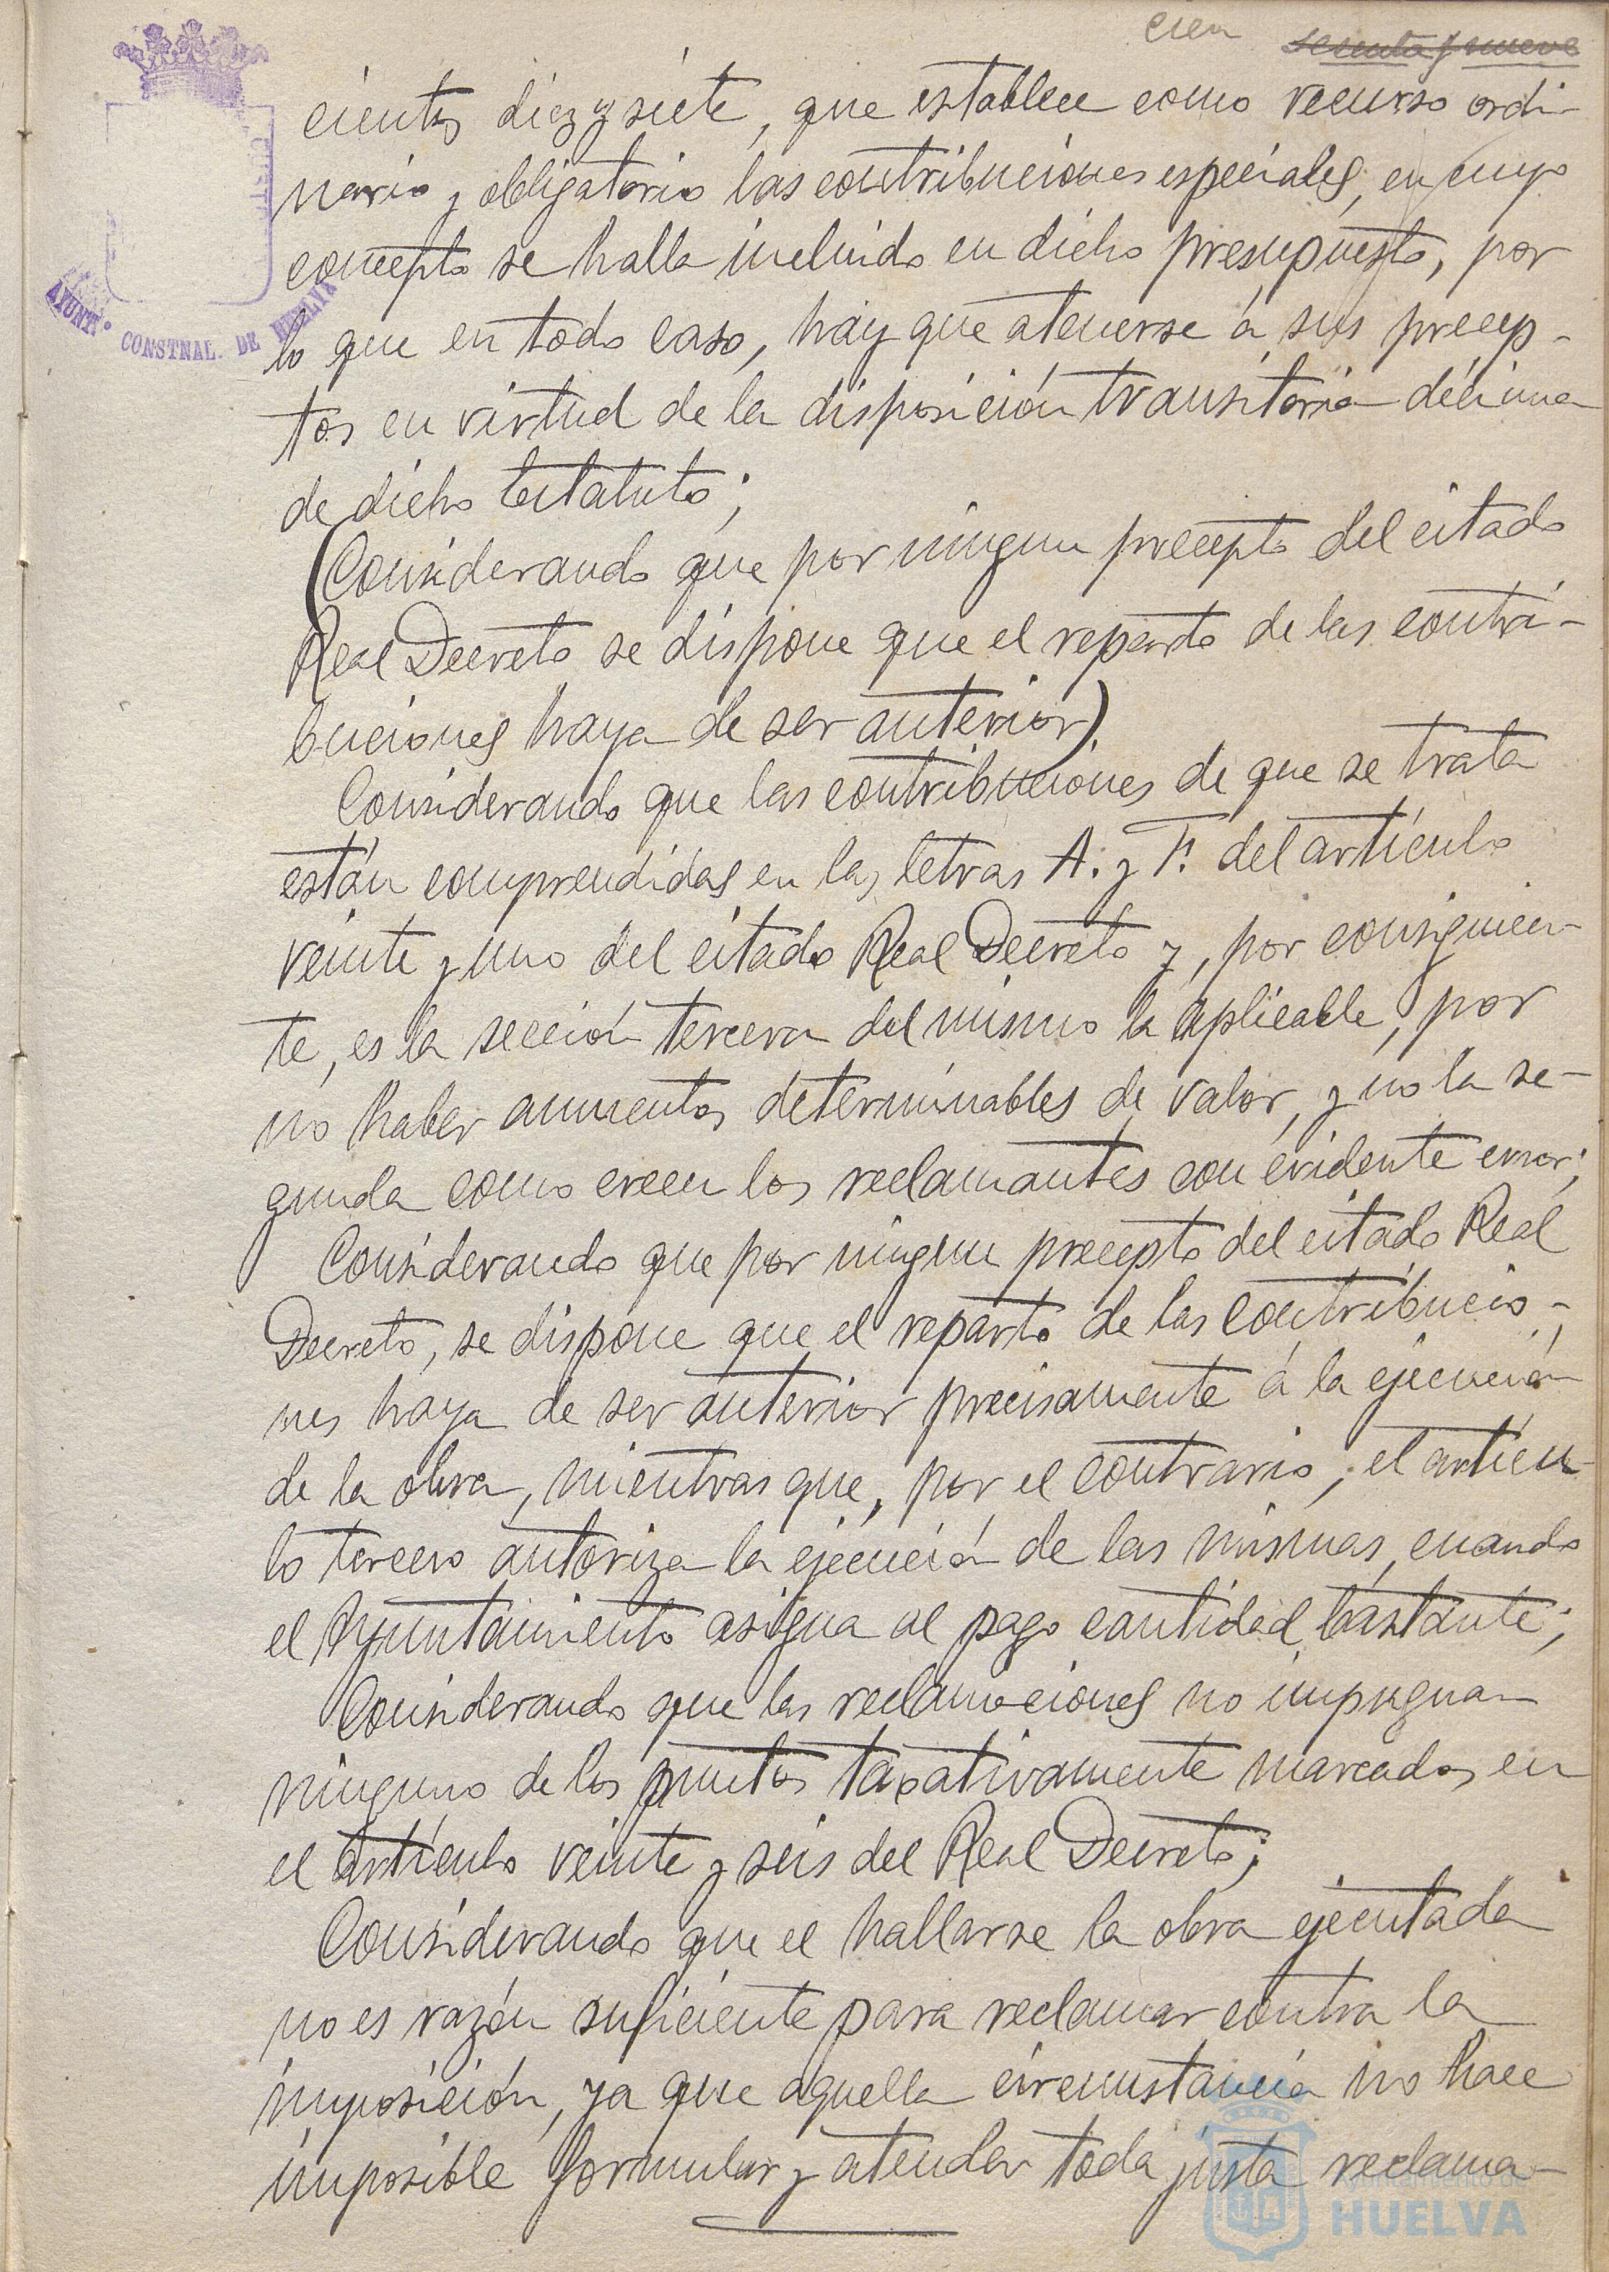 cien sesenta y nueve
cientos diez y siete, que establece como recurso ordi-
nario y obligatorio las contribuciones especiales, en cuyo
concepto se halla incluido en dicho presupuesto, por
lo que en todo caso, hay que atenerse á sus precep-
tos en virtud de la disposición transitoria décima
de dicho Estatuto;
(Considerando que por ningun precepto del citado
Real Decreto se dispone que el reparto de las contri-
buciones haya de ser anterior).
Considerando que las contribuciones de que se trata
están comprendidas en las letras A. y F. del artículo
veinte y uno del citado Real Decreto y, por consiguien-
te, es la sección tercera del mismo la aplicable, por
no haber aumentos determinables de valor, y no la se-
gunda como creen los reclamantes con evidente error;
Considerando que por ningun precepto del citado Real
Decreto, se dispone que el reparto de las contribucio-
nes haya de ser anterior precisamente á la ejecución
de la obra, mientras que, por el contrario, el artícu-
lo tercero autoriza la ejecución de las mismas, cuando
el Ayuntamiento asigna al pago cantidad bastante;
Considerando que las reclamaciones no impugnan
ninguno de los puntos taxativamente marcados en
el artículo veinte y seis del Real Decreto;
Considerando que el hallarse la obra ejecutada
no es razón suficiente para reclamar contra la
imposición, ya que aquella circunstancia no hace
imposible formular y atender toda justa reclama-
AYUNTº CONSTNAL. DE HUELVA
Ayuntamiento de
HUELVA